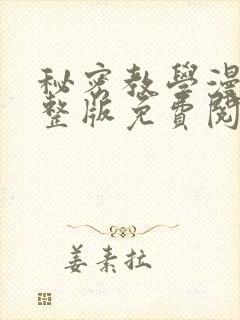 秘密教學漫
整版免費閱
姜素拉